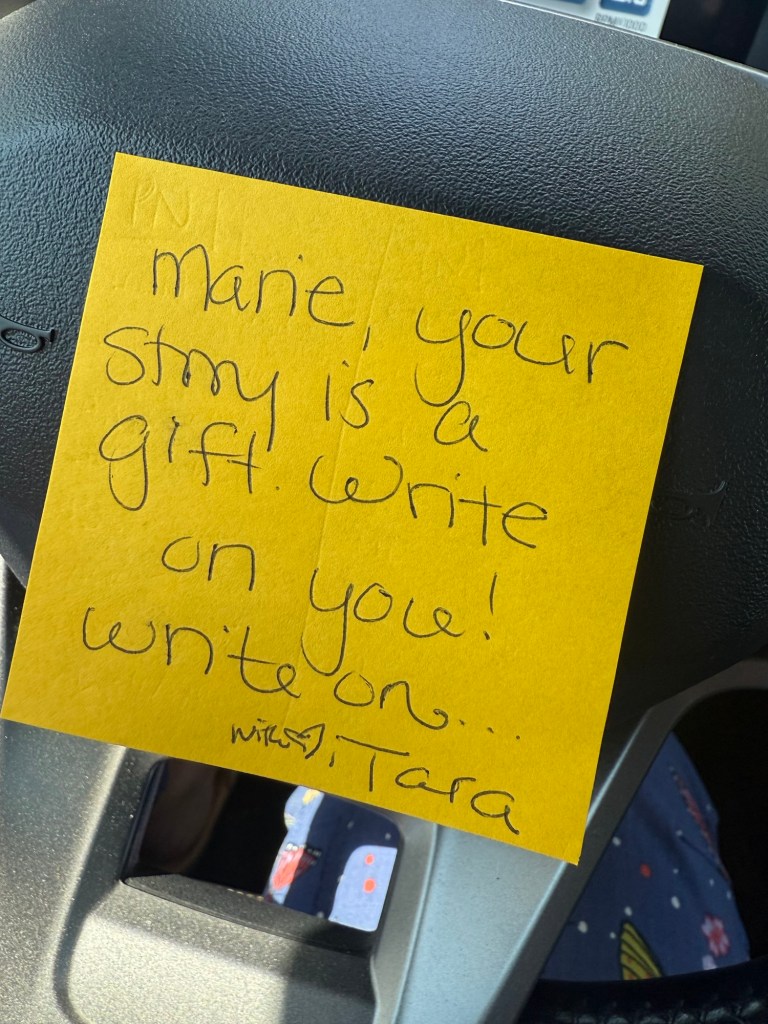 PN
Marie, your
story is a
gift. Write
on you!
write on...
with ♡, Tara